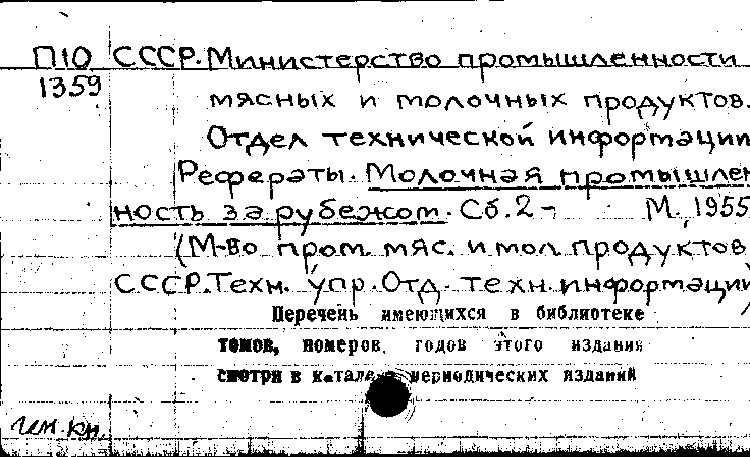 П10 СССР. Министерство промышленности
1359 мясных и молочных продуктов.
Отдел технической информации
Рефераты. Молочная промышлен
ность за рубежом. Сб. 2- М., 1955
(М-во пром. мяс. и мол. продуктов
СССР. Техн. упр. Отд. техн. информации)
Перечень имеющихся в библиотеке
томов, номеров, годов этого издания
смотри в катало периодических изданий